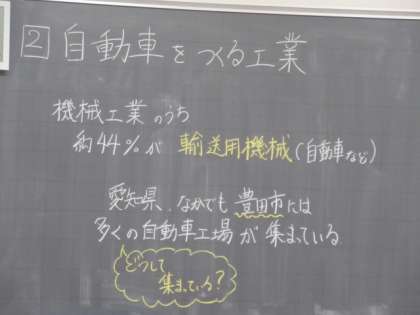 2 自動車をつくる工業
機械工業のうち
約44%が 輸送用機械(自動車など)
愛知県、なかでも豊田市には
多くの自動車工場が集まっている.
どうして
集まっている?